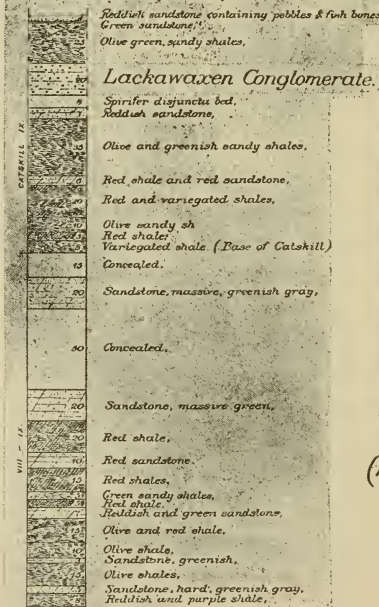 Reddish sandstone containing pebbles & fish bones
Green sandstone,
Olive green, sandy shales,
20 Lackawaxen Conglomerate.
8 Spirifer disjuncta bed,
Reddish sandstone,
CATSKILL IX.
15 Olive and greenish sandy shales,
Red shale and red sandstone,
20 Red and variegated shales,
10 Olive sandy sh
Red shale,
Variegated shale (Base of Catskill)
15 Concealed.
20 Sandstone, massive, greenish gray,
50 Concealed,
20 Sandstone, massive green,
VIII - IX.
20 Red shale,
10 Red sandstone.
15 Red shales,
Green sandy shales,
Red shale,
Reddish and green sandstone,
15 Olive and red shale,
10 Olive shale,
Sandstone, greenish,
15 Olive shales,
Sandstone, hard, greenish gray,
Reddish and purple shale,